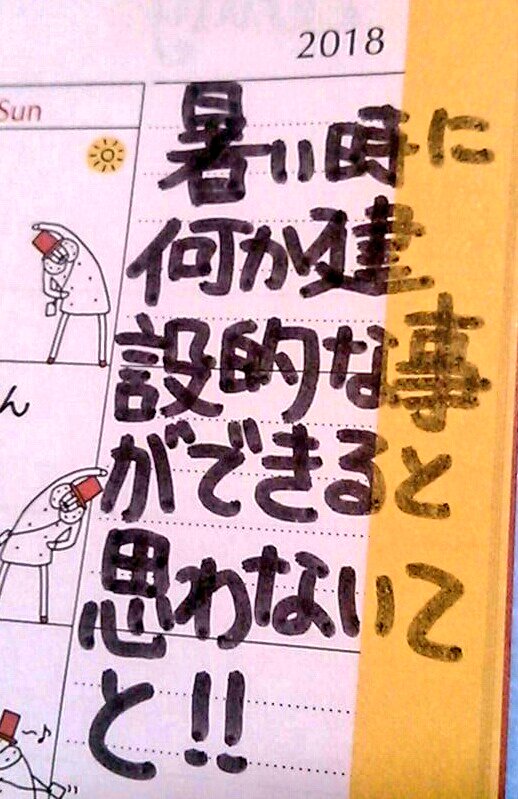 2018
Sun
暑い時に
何か建
設的な事
ん
ができると
思わないで
と!!